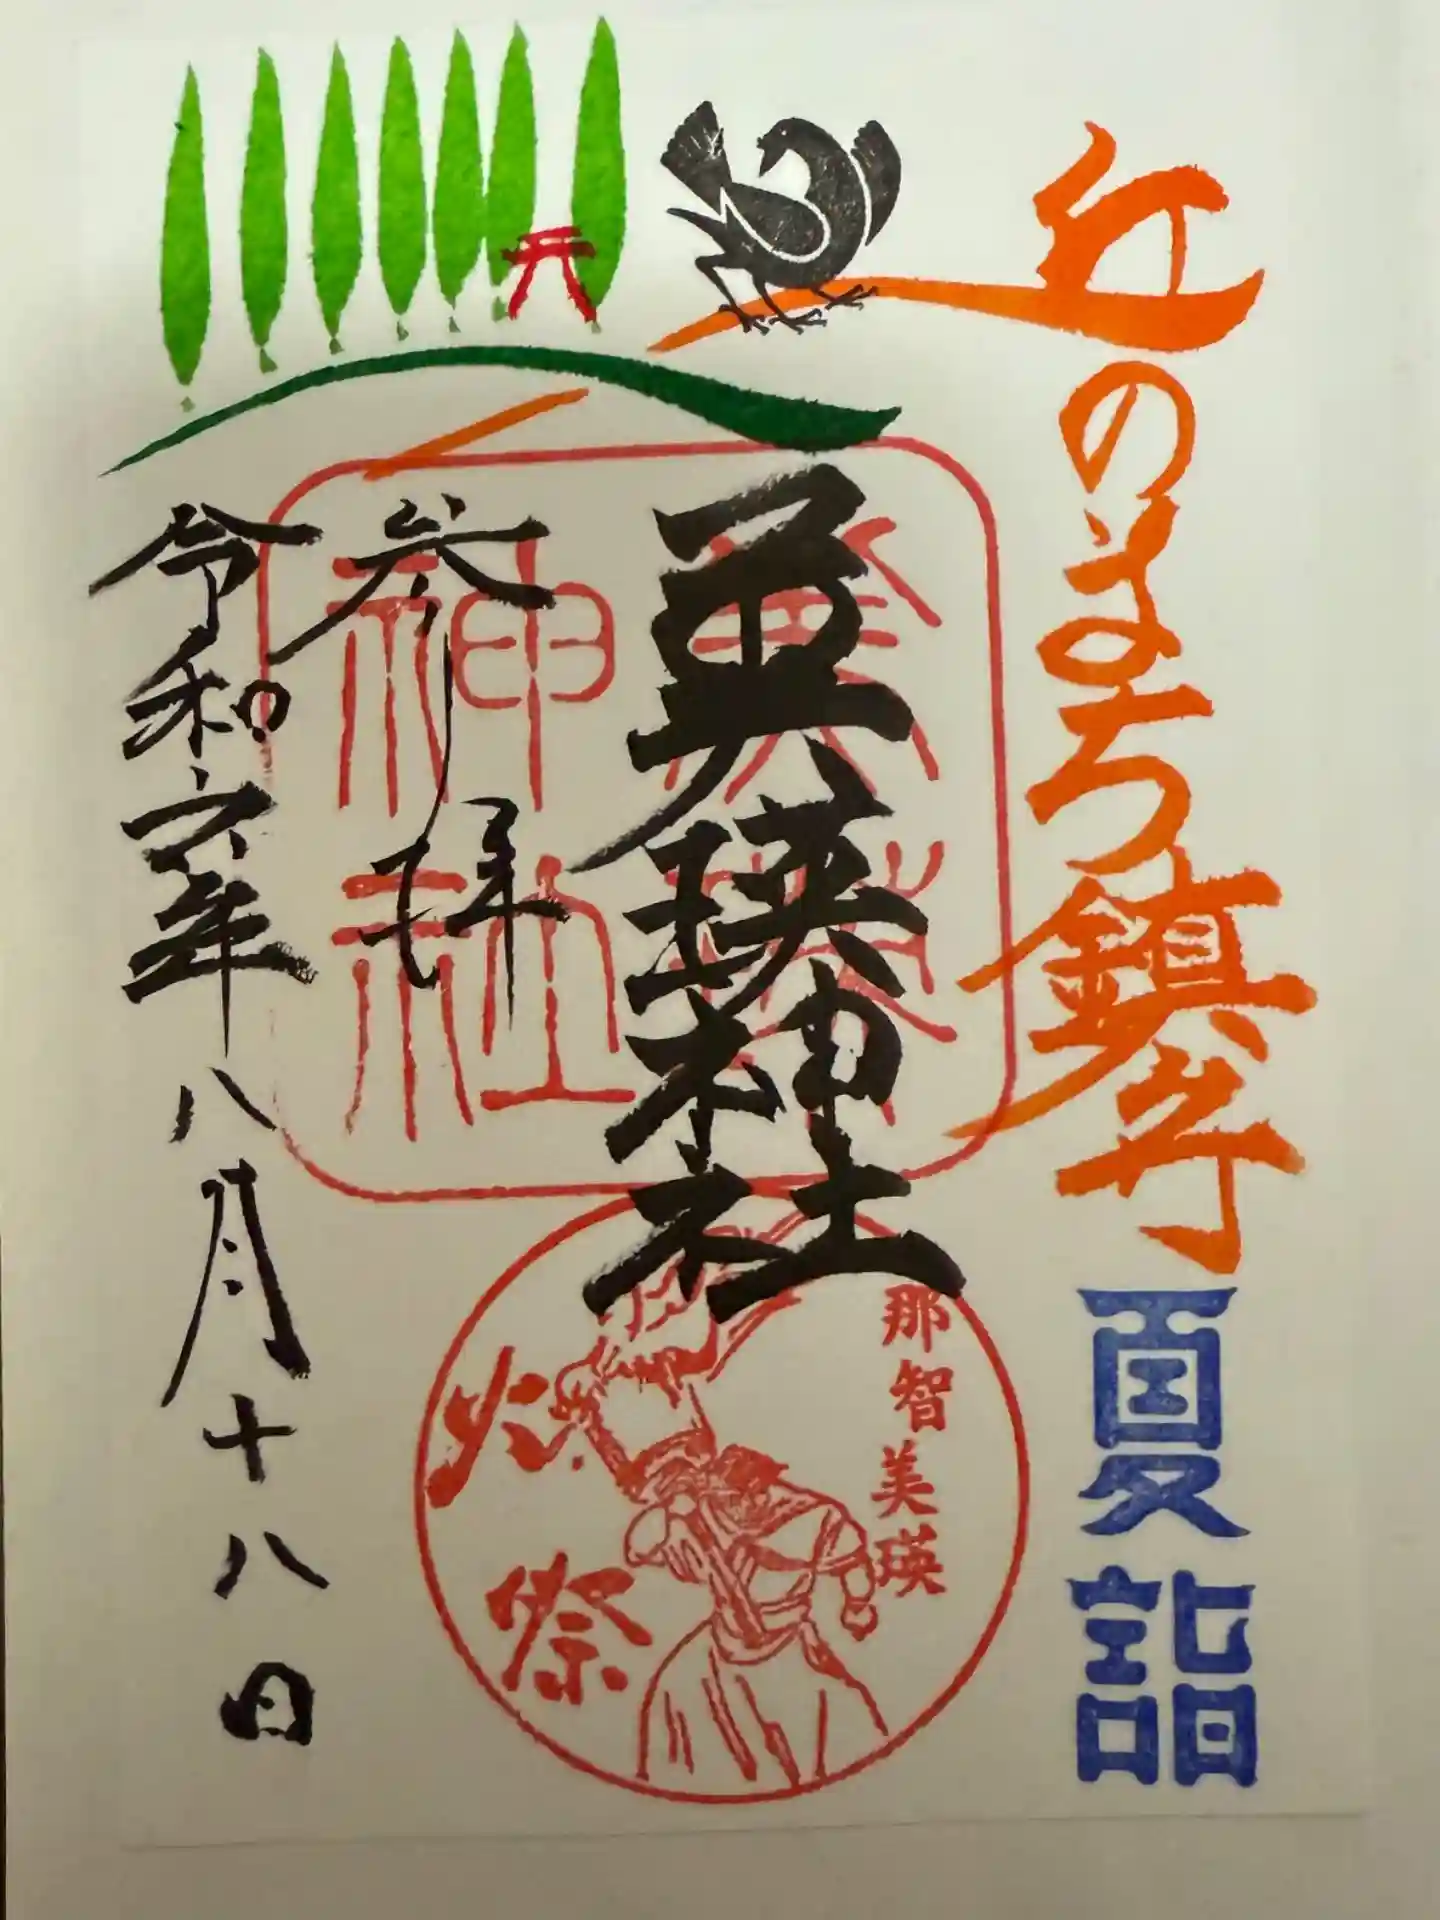 丘のまち鎮守
夏詣
美瑛神社
美瑛
神社
那智美瑛
火祭
参拝
令和六年八月十八日